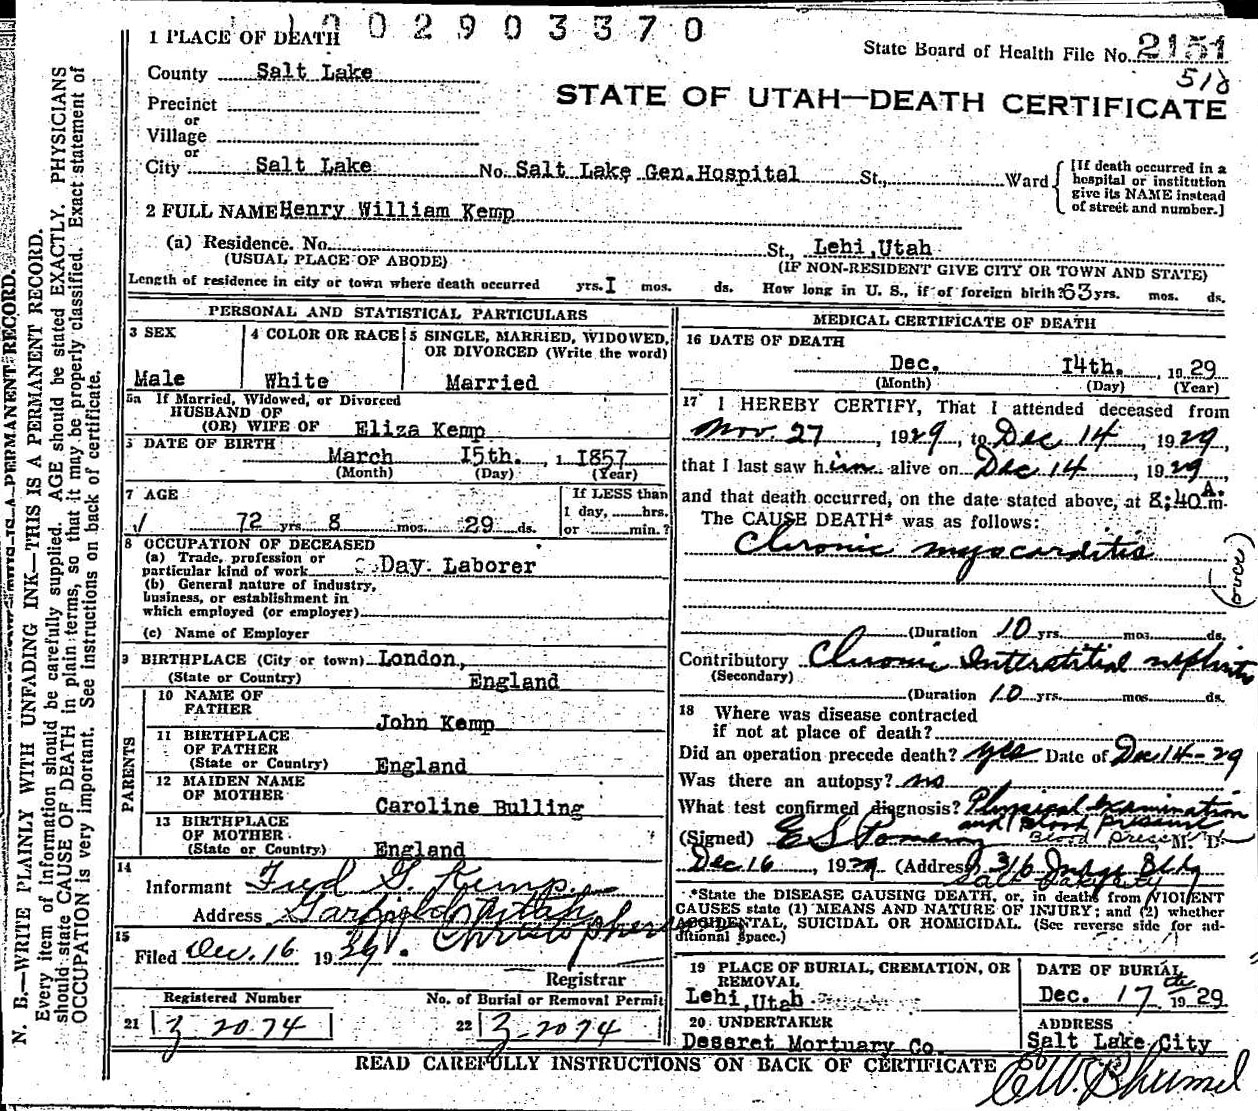 1002903370
1 PLACE OF DEATH
State Board of Health File No. 2151
510
County Salt Lake
STATE OF UTAH—DEATH CERTIFICATE
Precinct
or
Village
or
City Salt Lake No. Salt Lake Gen.Hospital St., Ward
[If death occurred in a
hospital or institution
give its NAME instead
of street and number.]
2 FULL NAME Henry William Kemp
(a) Residence. No. St., Lehi,Utah
(USUAL PLACE OF ABODE) (IF NON-RESIDENT GIVE CITY OR TOWN AND STATE)
Length of residence in city or town where death occurred yrs. I mos. ds. How long in U. S., if of foreign birth? 63 yrs. mos. ds.
PERSONAL AND STATISTICAL PARTICULARS
3 SEX
Male
4 COLOR OR RACE
White
5 SINGLE, MARRIED, WIDOWED,
OR DIVORCED (Write the word)
Married
5a If Married, Widowed, or Divorced
HUSBAND OF
(OR) WIFE OF Eliza Kemp
6 DATE OF BIRTH
March 15th. 1 1857
(Month) (Day) (Year)
7 AGE
72 yrs 8 mos. 29 ds.
If LESS than
1 day, hrs.
or min.?
8 OCCUPATION OF DECEASED
(a) Trade, profession or
particular kind of work Day Laborer
(b) General nature of industry,
business, or establishment in
which employed (or employer)
(c) Name of Employer
9 BIRTHPLACE (City or town) London,
(State or Country) England
PARENTS
10 NAME OF
FATHER
John Kemp
11 BIRTHPLACE
OF FATHER
(State or Country) England
12 MAIDEN NAME
OF MOTHER
Caroline Bulling
13 BIRTHPLACE
OF MOTHER
(State or Country) England
14
Informant Fred G. Kemp
Address Garfield Utah
15
Filed Dec. 16 1929. Christophers
Registrar
Registered Number
21 3-2074
No. of Burial or Removal Permit
22 3-2074
MEDICAL CERTIFICATE OF DEATH
16 DATE OF DEATH
Dec. 14th. , 1929
(Month) (Day) (Year)
17 I HEREBY CERTIFY, That I attended deceased from
Nov. 27 , 1929, to Dec 14 , 1929,
that I last saw him alive on Dec 14 , 1929,
and that death occurred, on the date stated above, at 8:40 A.m.
The CAUSE DEATH* was as follows:
Chronic myocarditis
(Duration 10 yrs. mos. ds.
Contributory Chronic Interstitial nephritis
(Secondary)
(Duration 10 yrs. mos. ds.
18 Where was disease contracted
if not at place of death?
Did an operation precede death? yes Date of Dec 14-29
Was there an autopsy? no
What test confirmed diagnosis? Physical examination
and Blood pressure
(Signed) E S Pomeroy M. D.
Dec 16 , 1929 (Address) 316 Judge Bldg
Salt Lake City
*State the DISEASE CAUSING DEATH, or, in deaths from VIOLENT
CAUSES state (1) MEANS AND NATURE OF INJURY; and (2) whether
ACCIDENTAL, SUICIDAL OR HOMICIDAL. (See reverse side for ad-
ditional space.)
19 PLACE OF BURIAL, CREMATION, OR
REMOVAL
Lehi,Utah
DATE OF BURIAL
Dec. 17 the 1929
20 UNDERTAKER
Deseret Mortuary Co.
ADDRESS
Salt Lake City
READ CAREFULLY INSTRUCTIONS ON BACK OF CERTIFICATE
N. B.—WRITE PLAINLY WITH UNFADING INK—THIS IS A PERMANENT RECORD.
Every item of information should be carefully supplied. AGE should be stated EXACTLY. PHYSICIANS
should state CAUSE OF DEATH in plain terms, so that it may be properly classified. Exact statement of
OCCUPATION is very important. See Instructions on back of certificate.